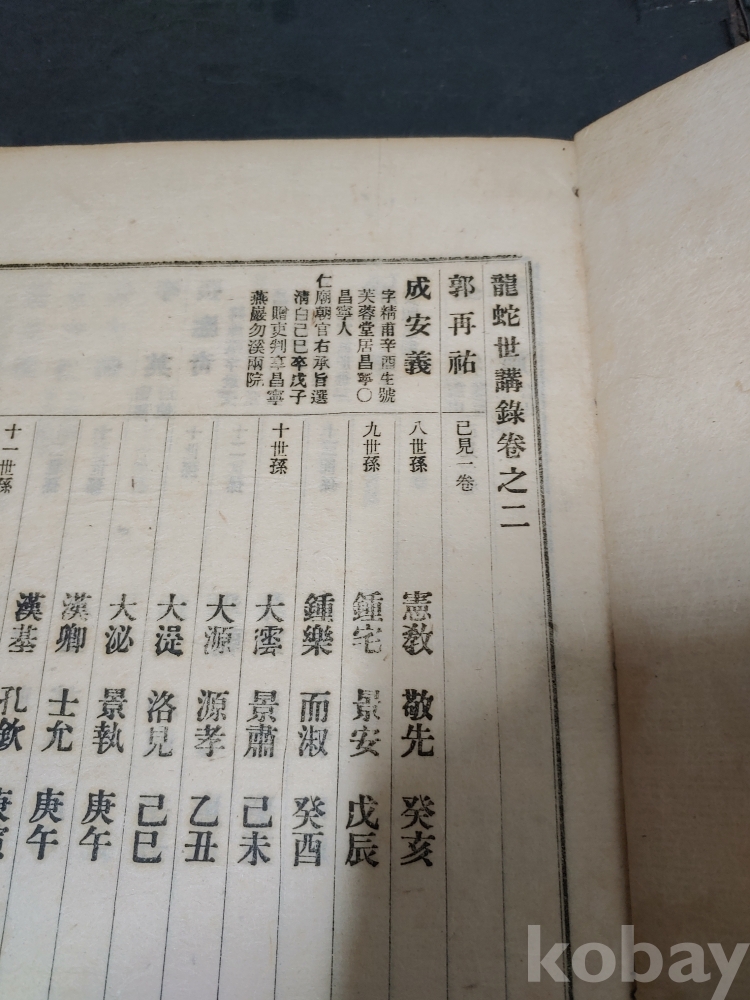 龍蛇世講錄卷之二
郭再祐
已見一卷
成安義
字精甫辛酉生號
芙蓉堂居昌寧〇
昌寧人
仁廟朝官右承旨選
清白己巳卒戊子
贈吏判享昌寧
燕巖勿溪兩院
八世孫 憲教 敬先 癸亥
九世孫 鍾宅 景安 戊辰
鍾樂 而淑 癸酉
十世孫 大澐 景肅 己未
大源 源孝 乙丑
大湜 洛見 己巳
大泌 景執 庚午
漢卿 士允 庚午
十一世孫 漢基 孔欽 庚寅
kobay